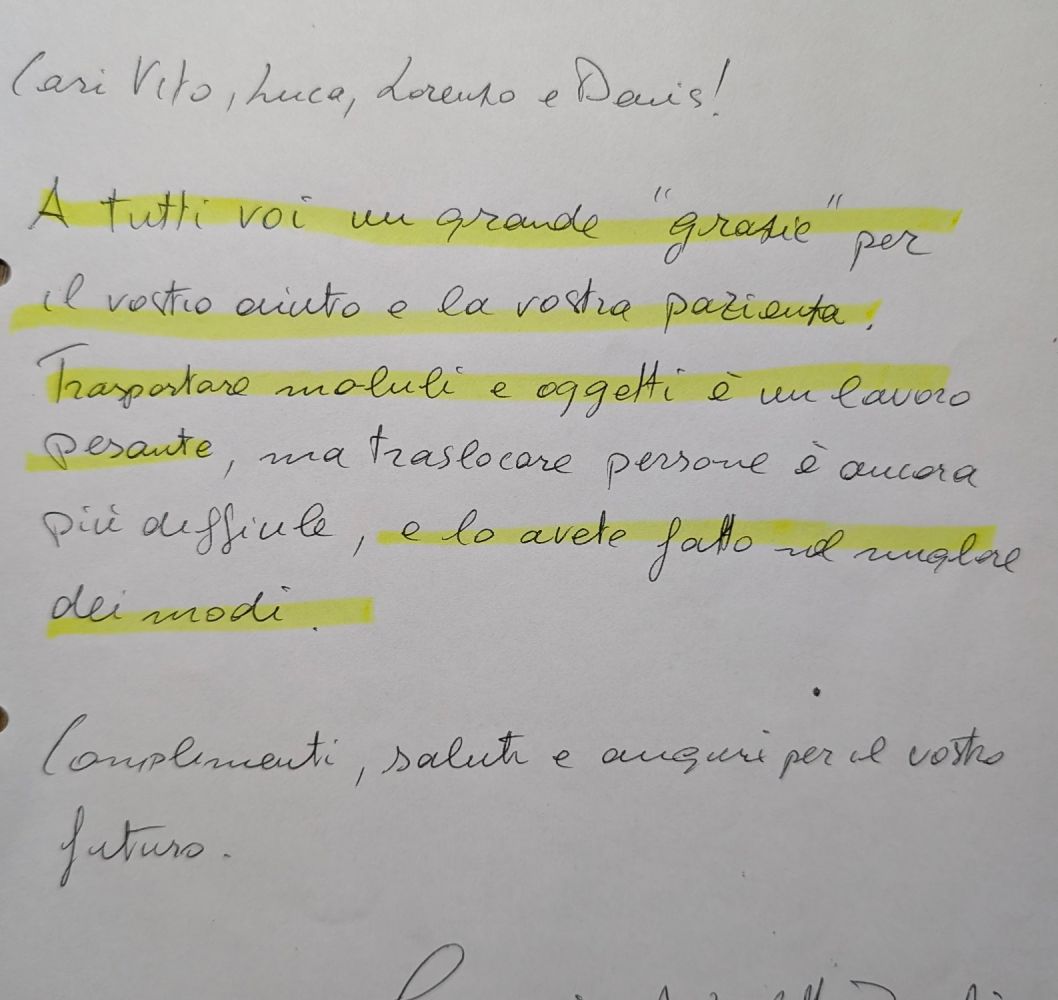 Cari Vito, Luca, Lorenzo e Denis!
A tutti voi un grande "grazie" per
il vostro aiuto e la vostra pazienza.
Trasportare mobili e oggetti è un lavoro
pesante, ma traslocare persone è ancora
più difficile, e lo avete fatto nel migliore
dei modi.
Complimenti, saluti e auguri per il vostro
futuro.